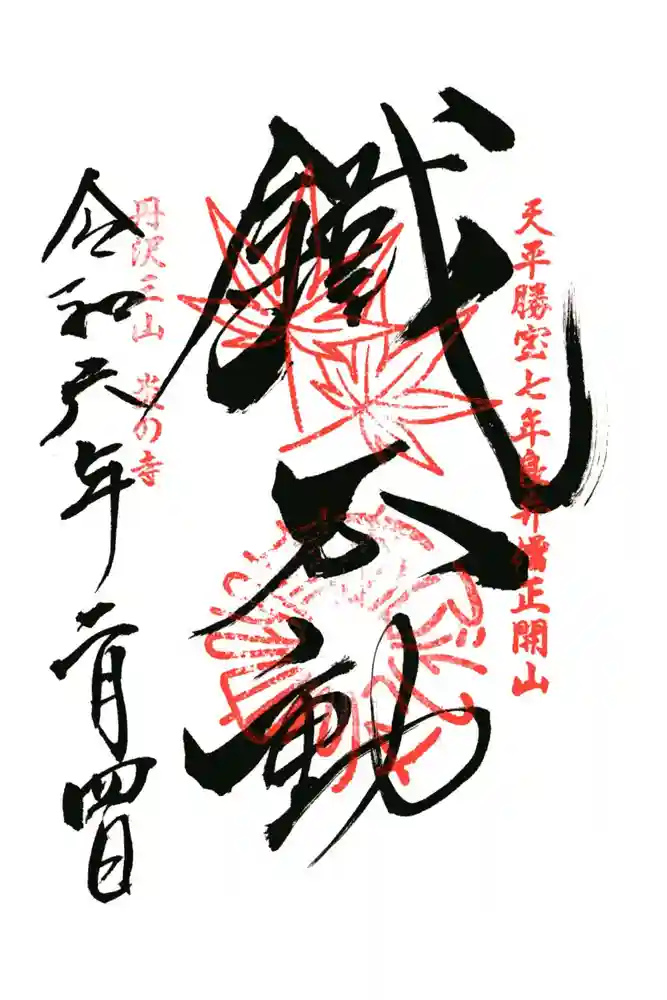 天平勝宝七年良弁僧正開山
鐵不動
丹沢 山 の寺
令和六年二月四日